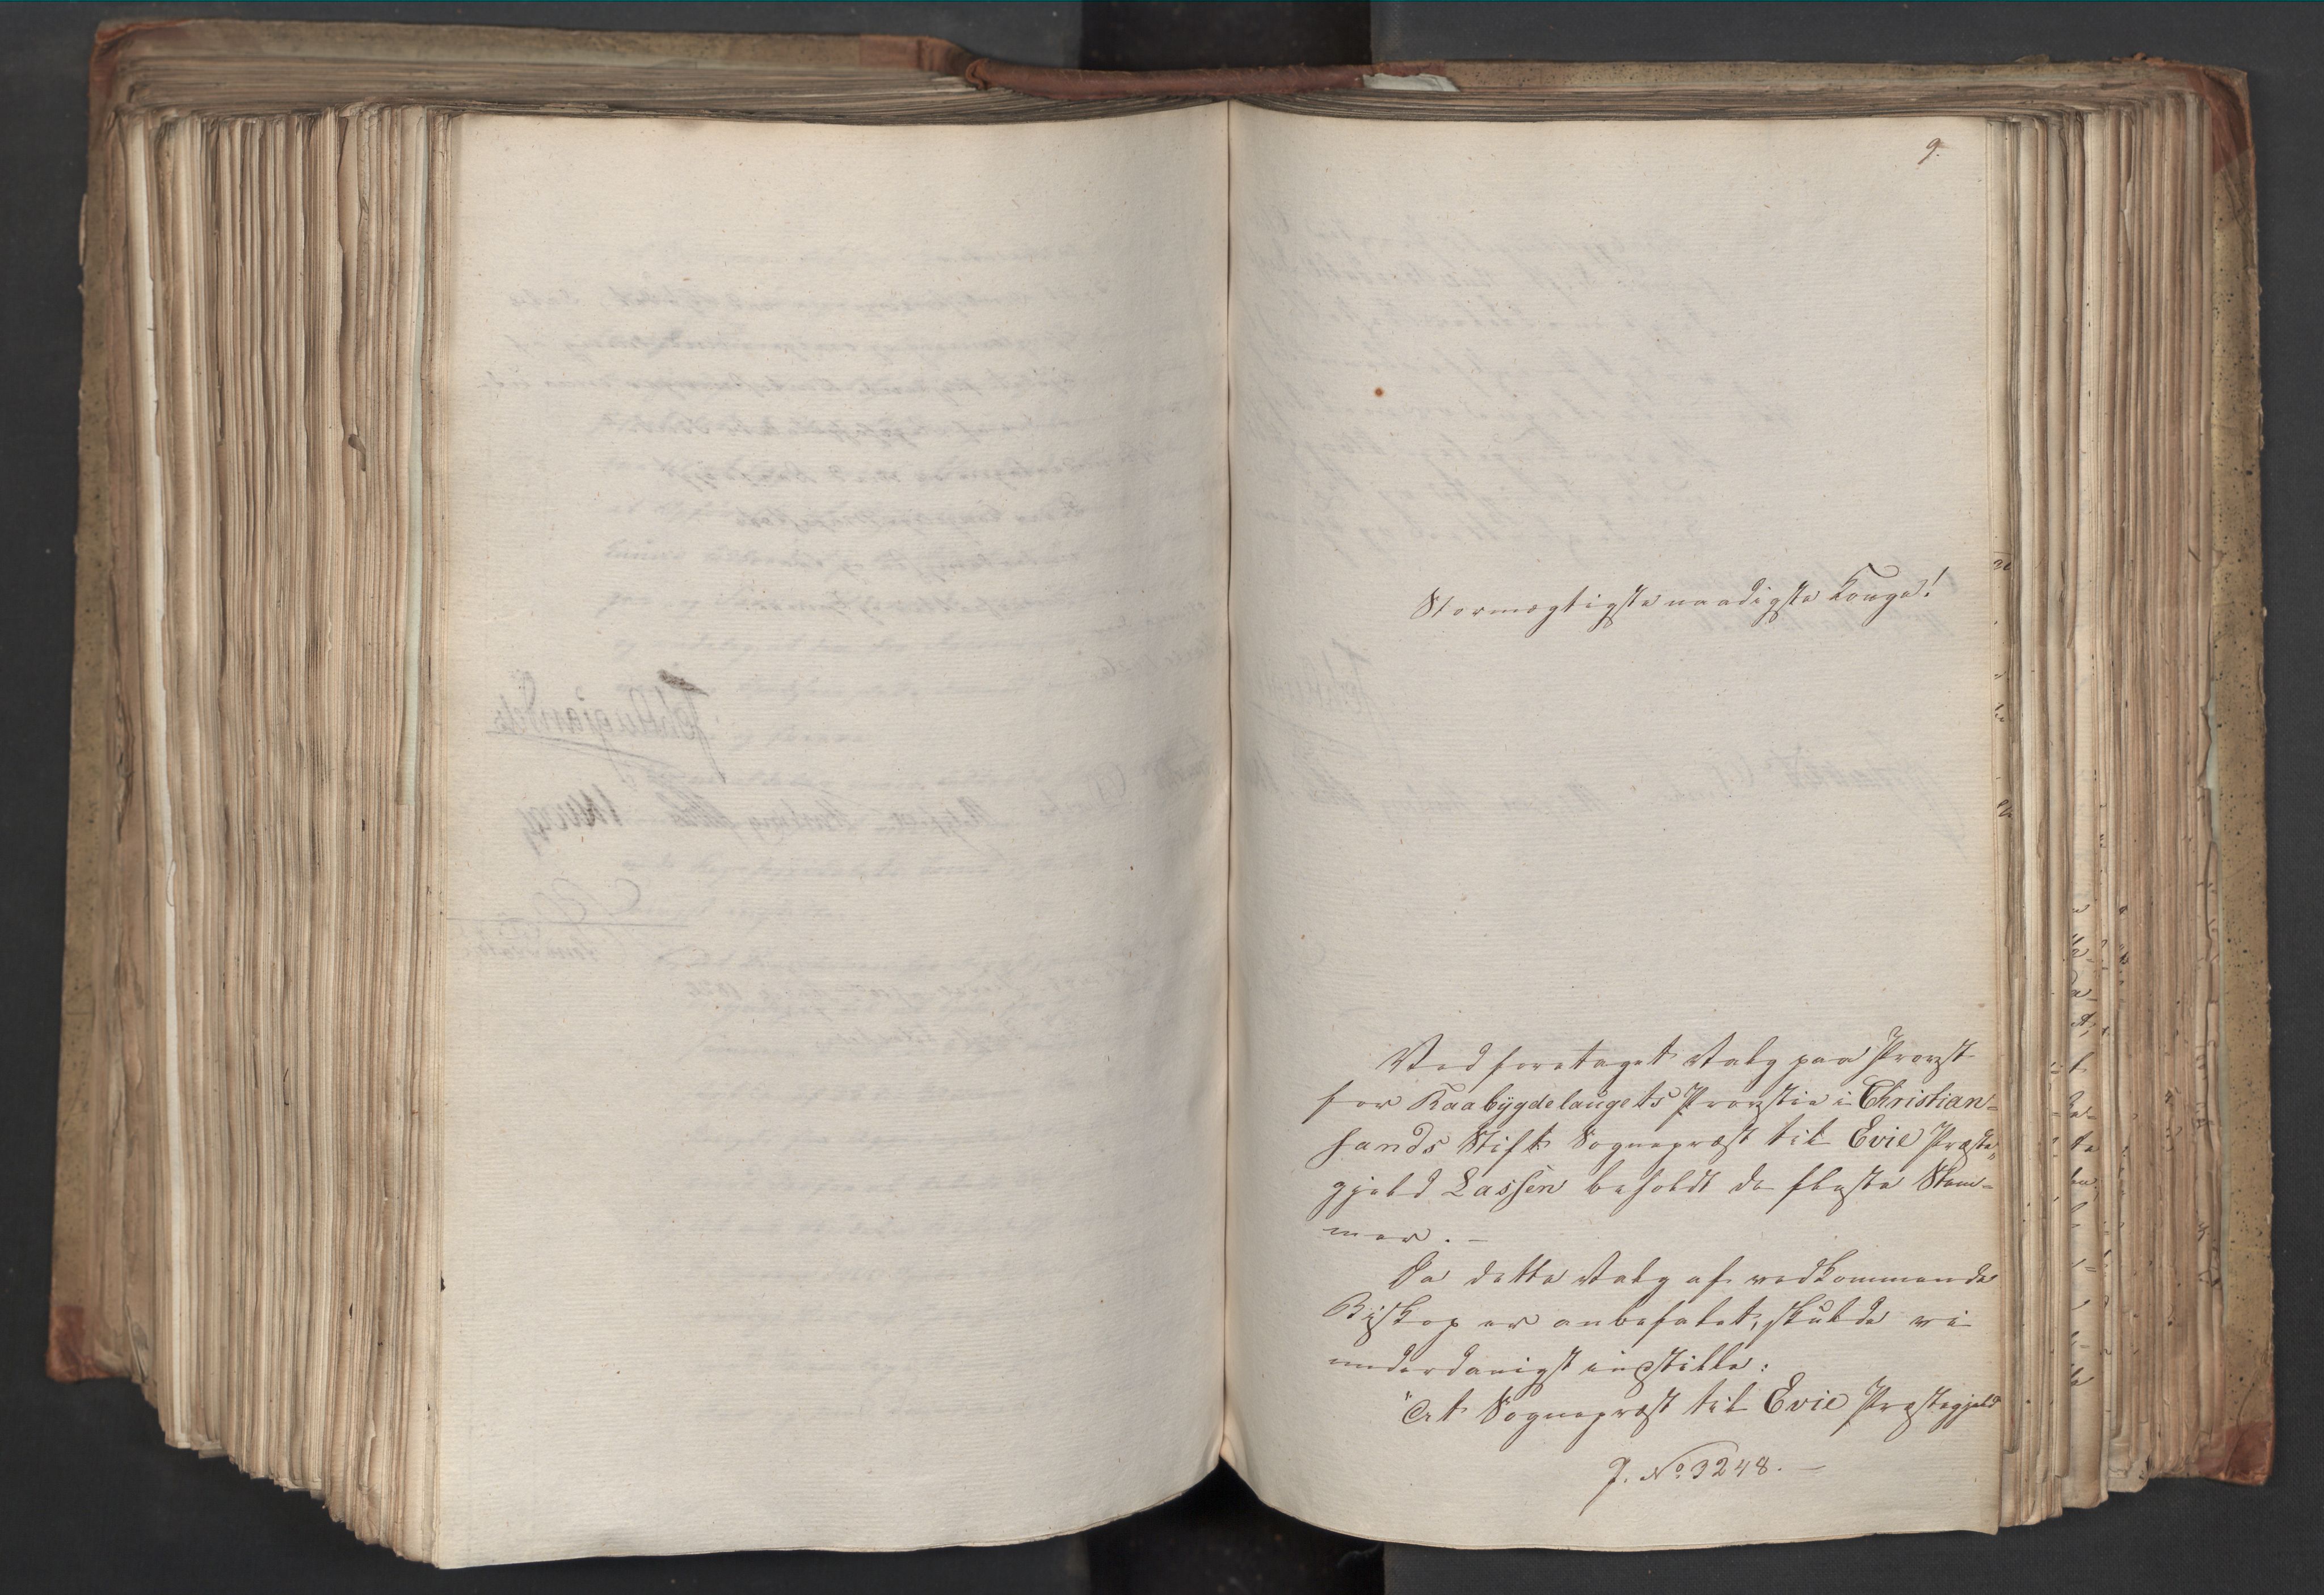 9.
Stormægtigste naadigste Konge!
Ved foretaget Valg paa Provst
for Raabygdelaugets Provstie i Christian-
sands Stift Sognepræst til Evie Præste-
gjeld Lassen beholdt de fleste Stem-
mer. -
Da dette Valg af vedkommende
Biskop er anbefalet, skulde vi
underdanigst indstille:
"At Sognepræst til Evie Præstegjeld
J. No. 3248. -